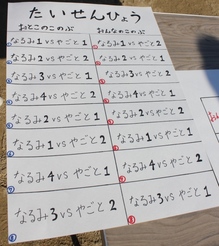 たいせんひょう
おとこのこのぶ おんなのこのぶ
なるみ1vsやごと2 なるみ1vsやごと2
なるみ2vsやごと1 なるみ2vsやごと1
なるみ3vsやごと1 なるみ3vsやごと1
なるみ4vsやごと2 なるみ4vsやごと2
なるみ2vsやごと2 なるみ2vsやごと2
なるみ1vsやごと1 なるみ1vsやごと1
なるみ4vsやごと1 なるみ4vsやごと1
なるみ3vsやごと2 なるみ3vsやごと2